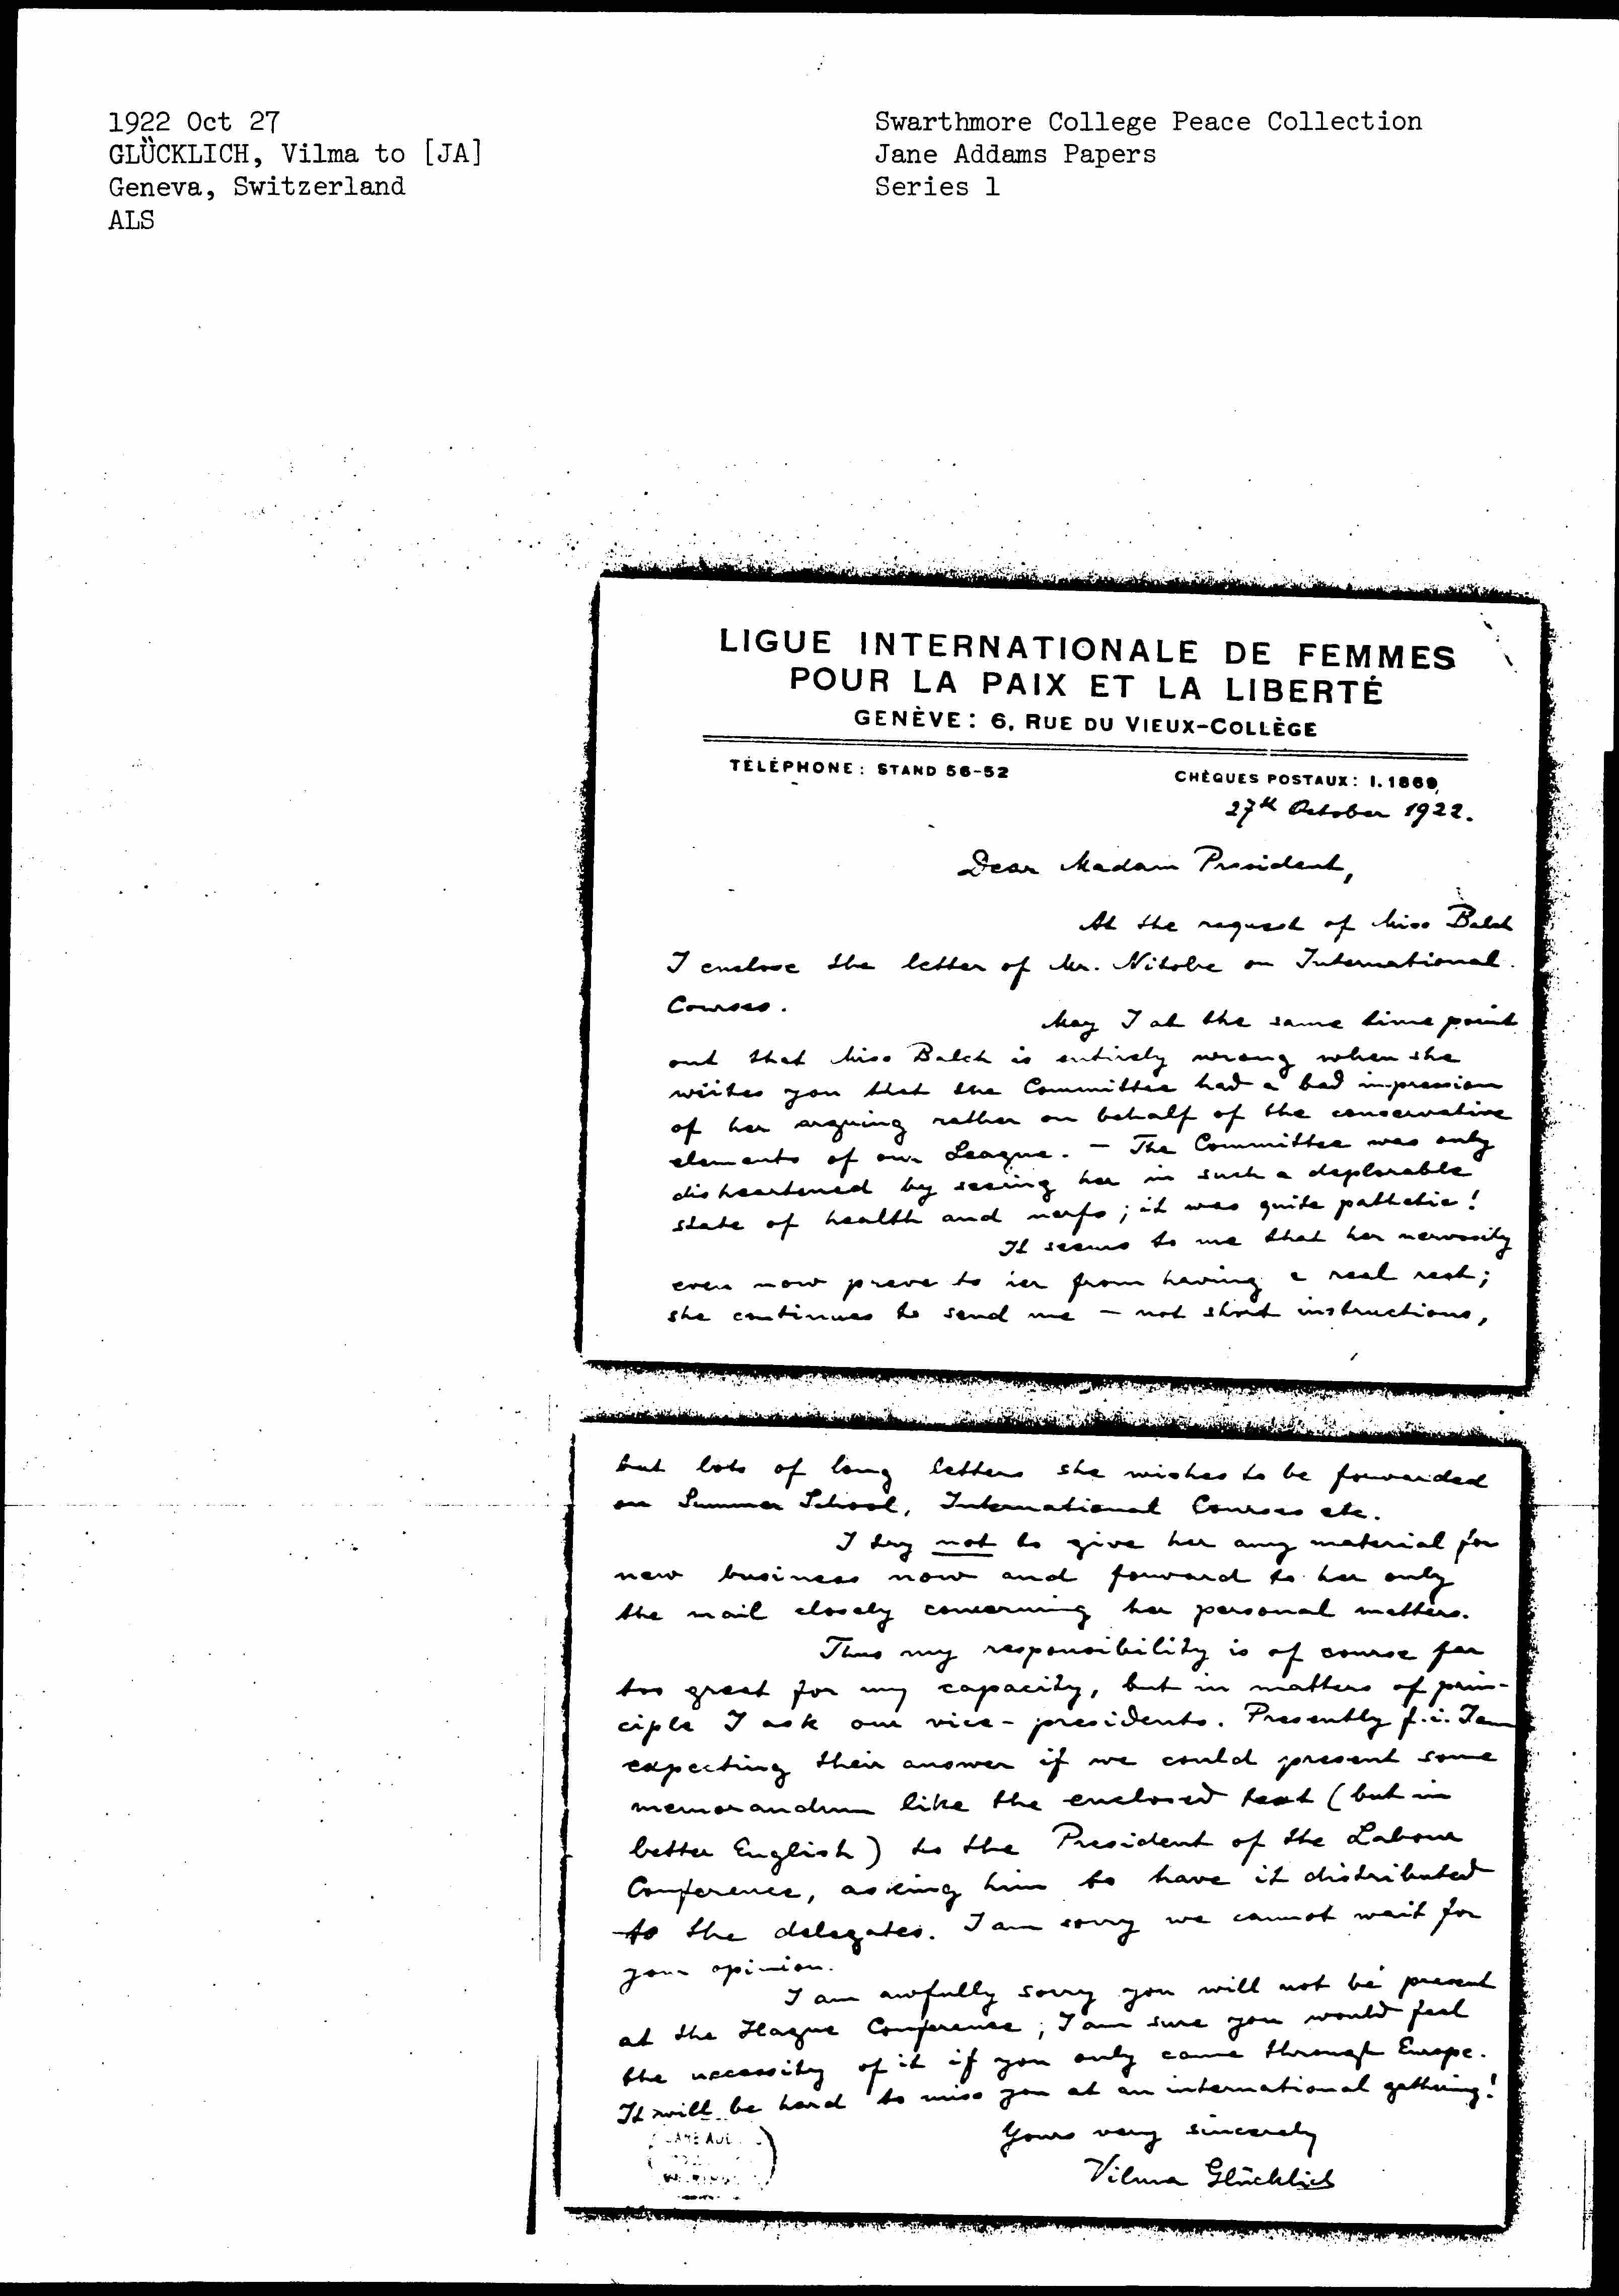 1922 Oct 27
GLÜCKLICH, Vilma to [JA]
Geneva, Switzerland
ALS
Swarthmore College Peace Collection
Jane Addams Papers
Series 1
LIGUE INTERNATIONALE DE FEMMES
POUR LA PAIX ET LA LIBERTÉ
GENÈVE: 6, RUE DU VIEUX-COLLÈGE
TÉLÉPHONE: STAND 56-52
CHÈQUES POSTAUX: I.1869
27th October 1922.
Dear Madam President,
At the request of Miss Balch
I enclose the letter of Mr. Nitobe on International
Courses.
May I at the same time point
out that Miss Balch is entirely wrong when she
writes you that the Committee had a bad impression
of her arguing rather on behalf of the conservative
elements of our League. – The Committee was only
disheartened by seeing her in such a deplorable
state of health and nerfs; it was quite pathetic!
It seems to me that her nervosity
even now preve to her from having a real rest;
she continues to send me – not short instructions,
but lots of long letters she wishes to be forwarded
on Summer School, International Courses etc.
I try not to give her any material for
new business now and forward to her only
the mail closely concerning her personal matters.
Thus my responsibility is of course far
too great for my capacity, but in matters of prin-
ciple I ask our vice-presidents. Presently f.i. I am
expecting their answer if we could present some
memorandum like the enclosed text (but in
better English) to the President of the Labour
Conference, asking him to have it distributed
to the delegates. I am sorry we cannot wait for
your opinion.
I am awfully sorry you will not be present
at the Hague Conference; I am sure you would feel
the necessity of it if you only came through Europe.
It will be hard to miss you at an international gathering!
Yours very sincerely
Vilma Glücklich